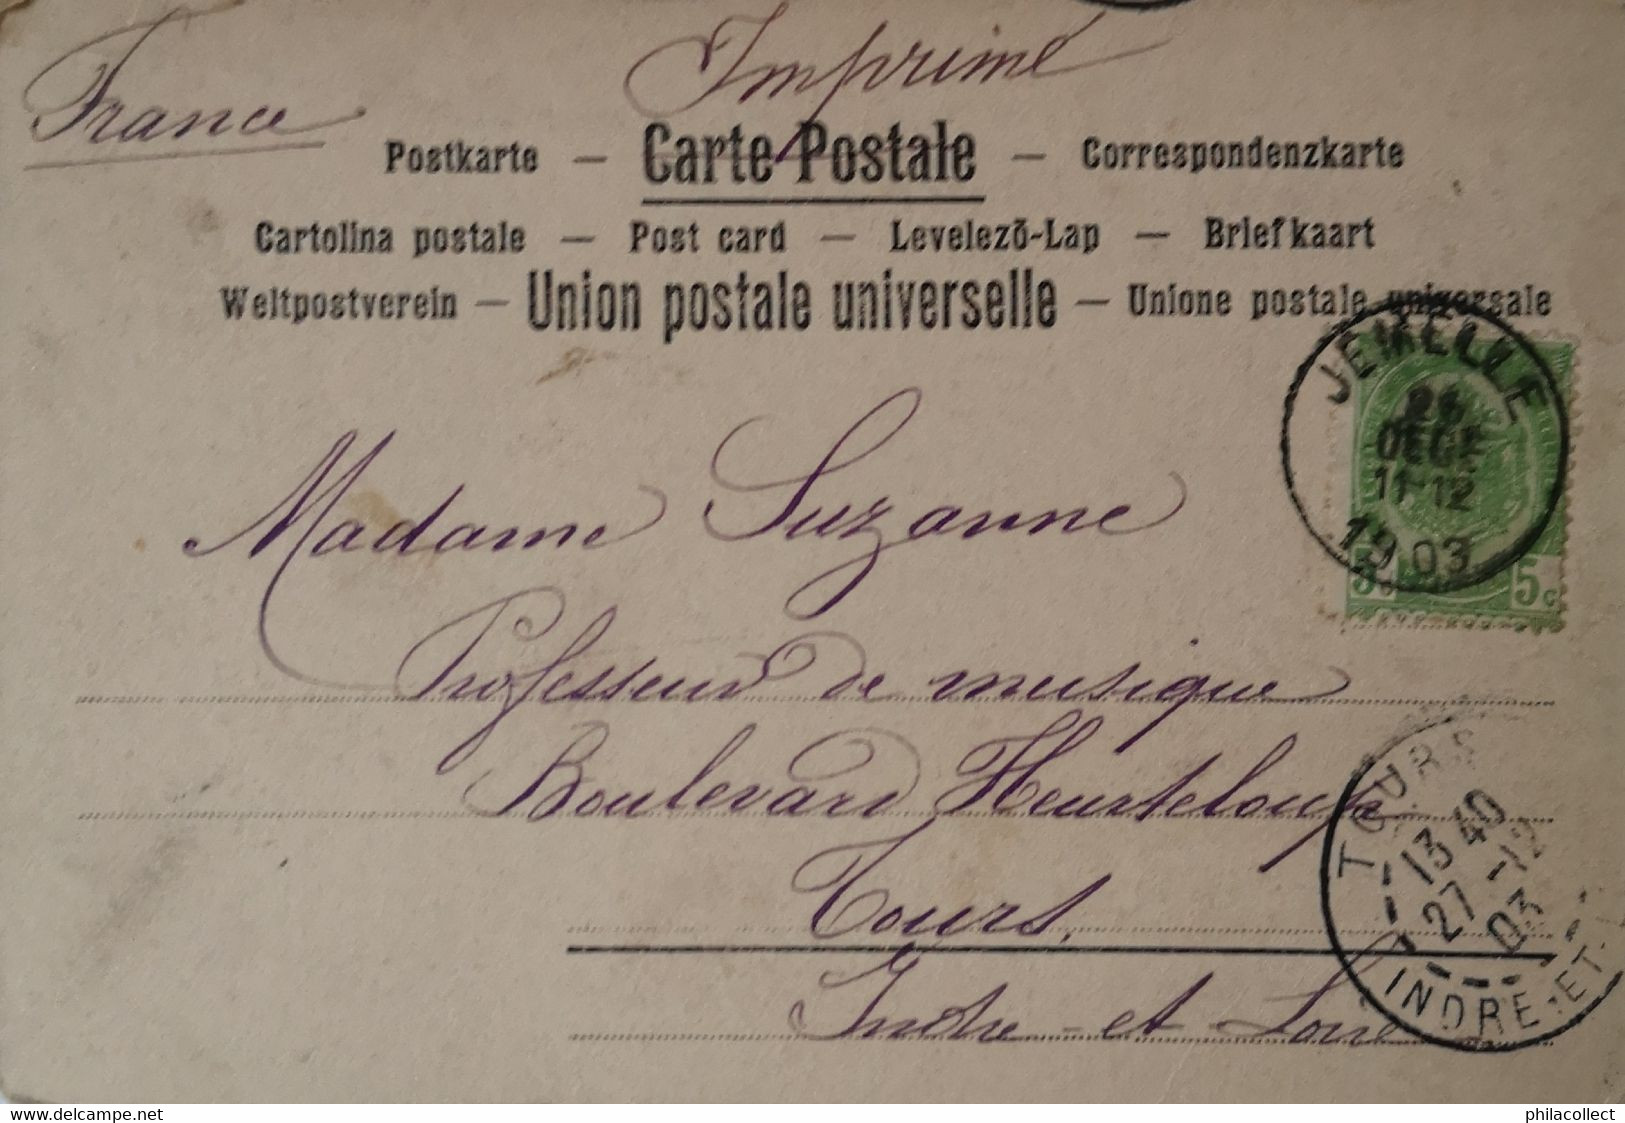 France
Imprimé
Postkarte — Carte Postale — Correspondenzkarte
Cartolina postale — Post card — Levelező-Lap — Briefkaart
Weltpostverein — Union postale universelle — Unione postale universale
JEMELLE
26
DECE
11-12
1903
5c 5c
Madame Suzanne
Professeur de musique
Boulevard Heurteloup
Tours.
Indre-et-Loire
TOURS
13 40
27 -12
03
INDRE-ET-
delcampe.net
philacollect